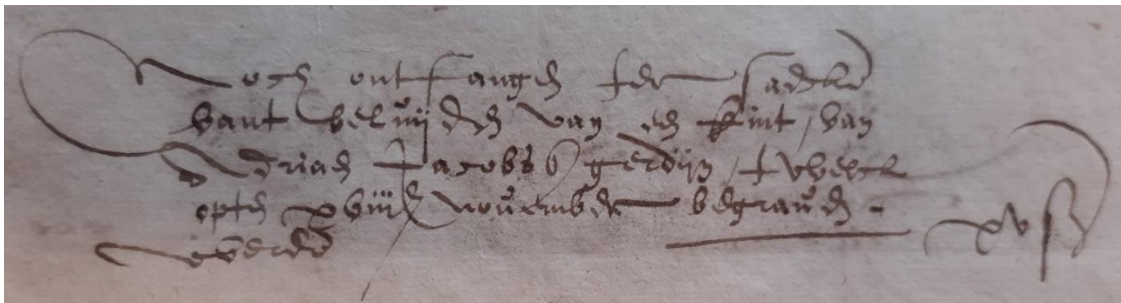 Noch ontfangen ter saecken
vant beluijden van een kint, van
Adriaen Jacobss gerdijn, twelck
opten xviiien november begraven
werdt xv s